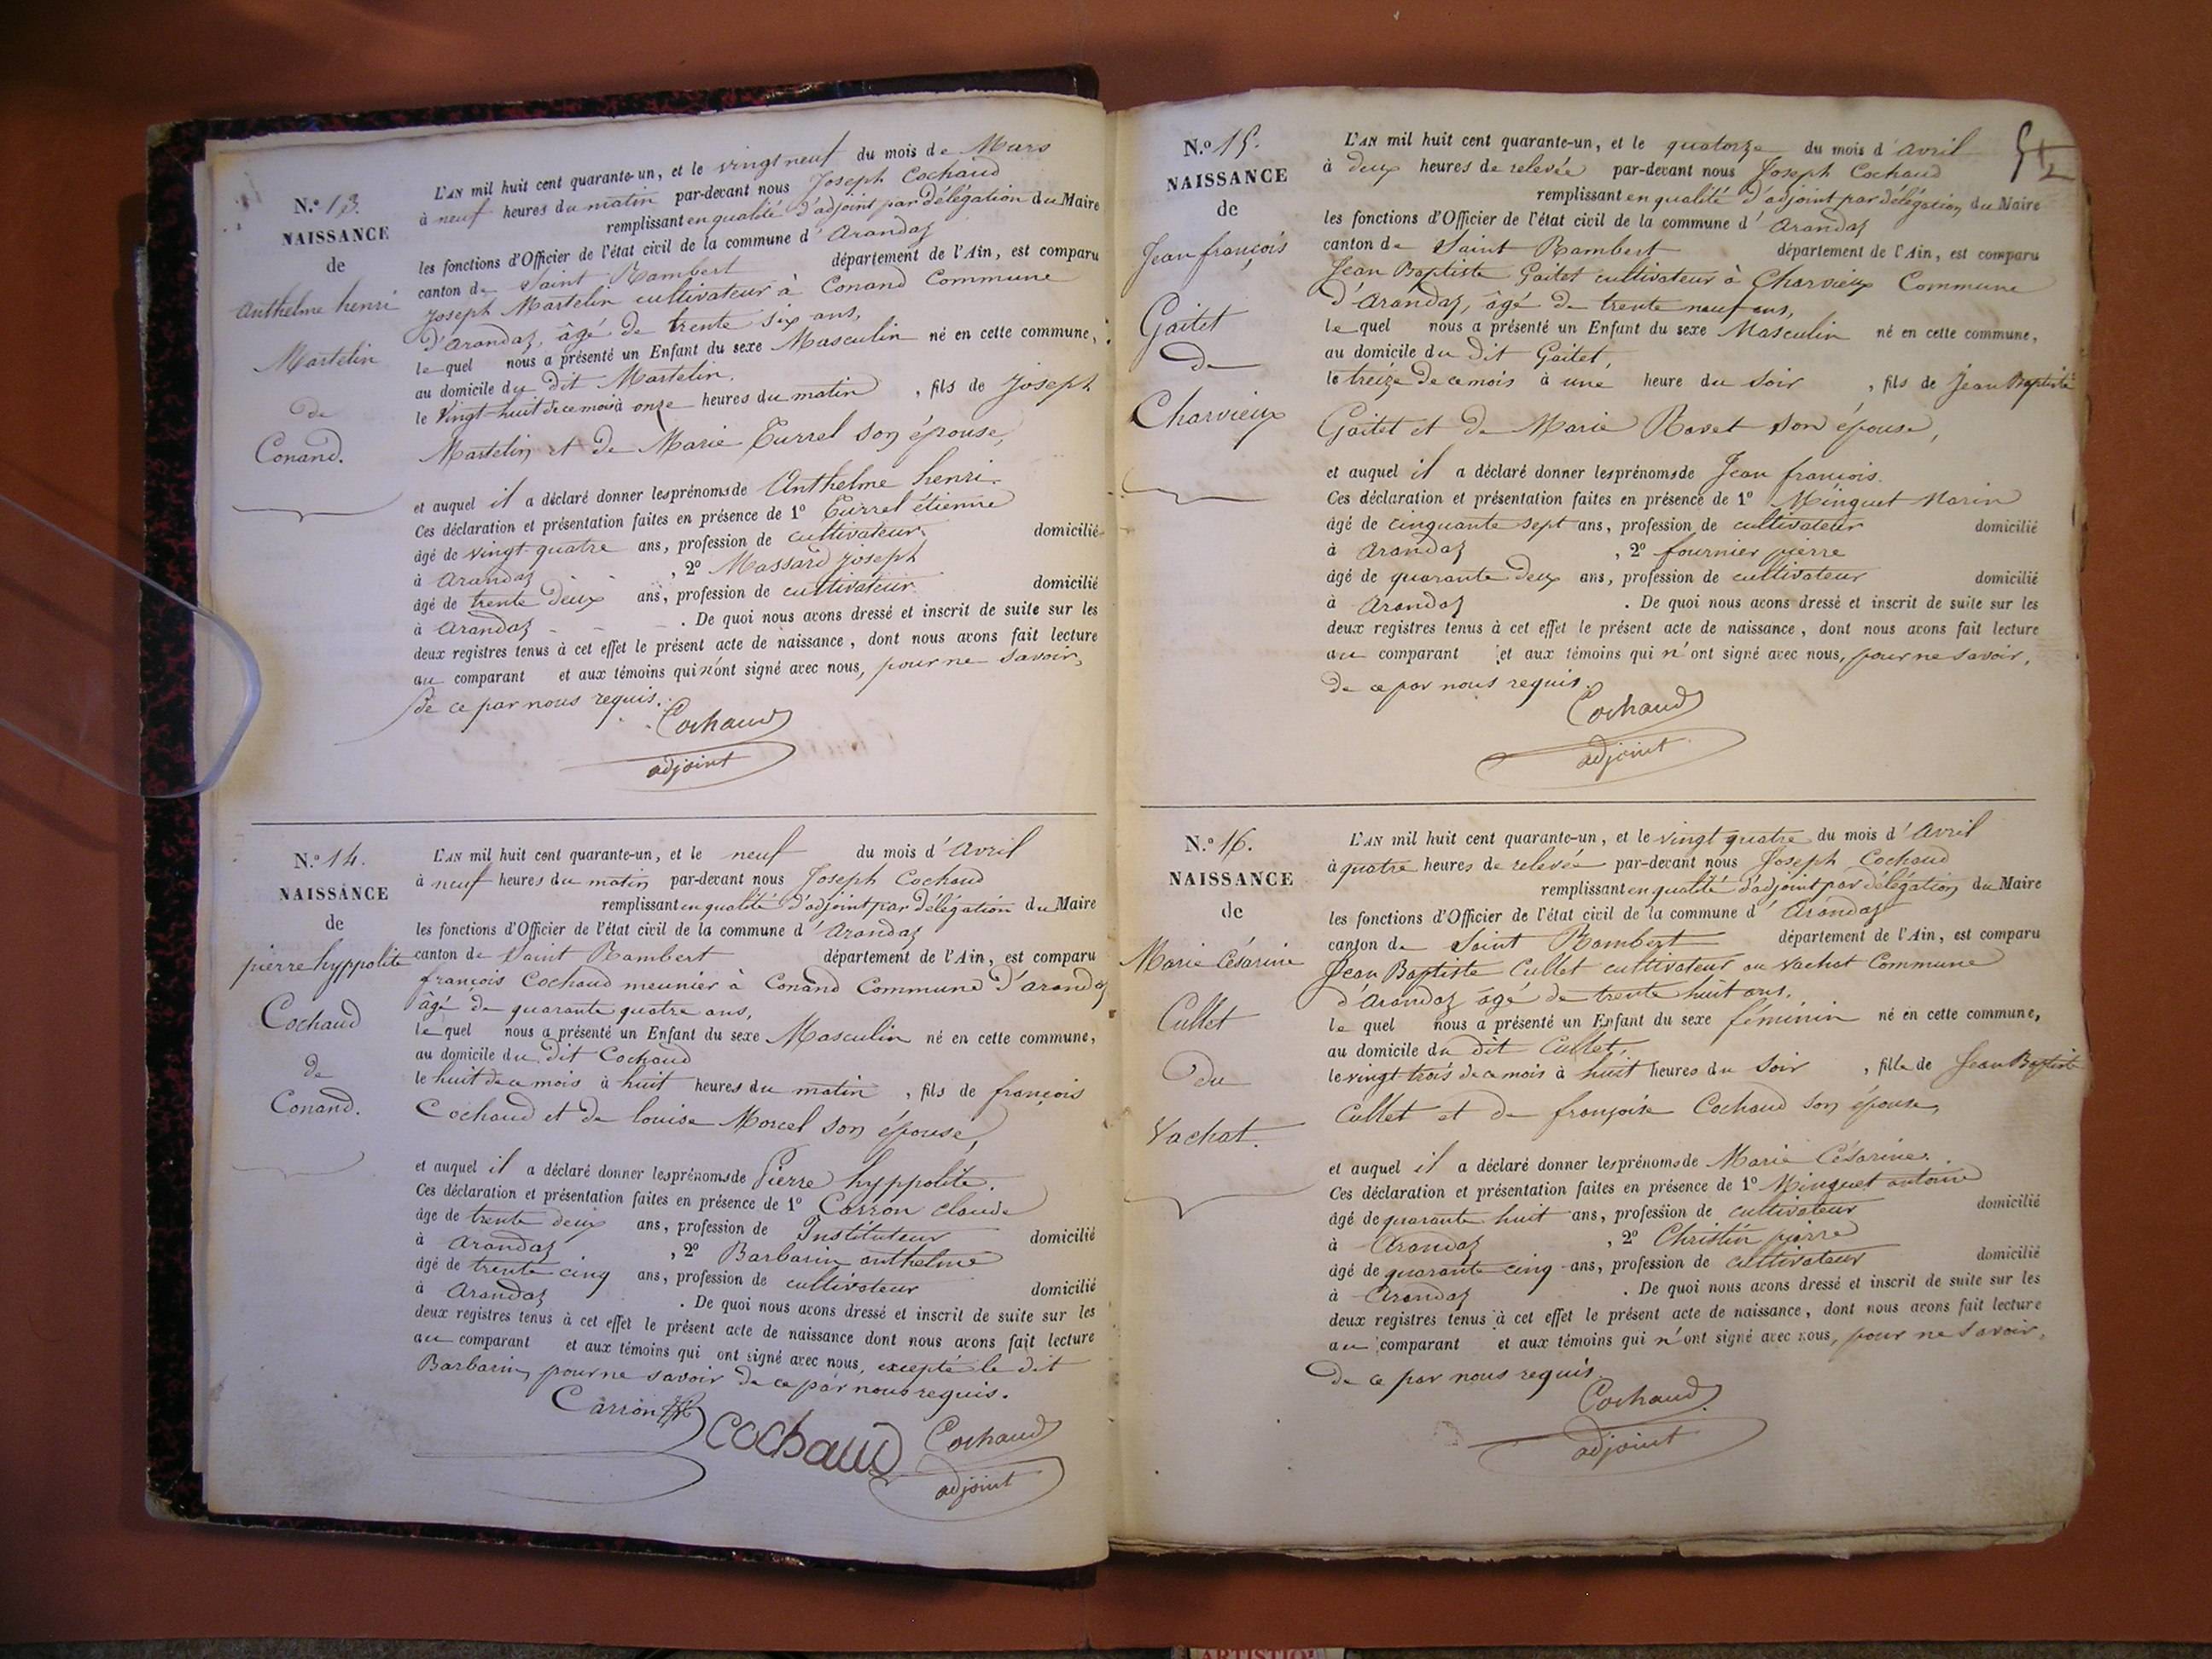 N.º 13.
NAISSANCE
de
Anthelme henri
Martelin
de
Conand.
L'AN mil huit cent quarante-un, et le vingt neuf du mois de Mars
à neuf heures du matin par-devant nous Joseph Cochaud
remplissant en qualité d'adjoint par délégation du Maire
les fonctions d'Officier de l'état civil de la commune d' Arandaz
canton de Saint Rambert département de l'Ain, est comparu
Joseph Martelin cultivateur à Conand Commune
d'arandaz, âgé de trente six ans,
le quel nous a présenté un Enfant du sexe Masculin né en cette commune,
au domicile du dit Martelin,
le Vingt-huit de ce mois à onze heures du matin , fils de Joseph
Martelin et de Marie Turrel son épouse,
et auquel il a déclaré donner les prénoms de Anthelme henri.
Ces déclaration et présentation faites en présence de 1º Turrel étienne
âgé de vingt-quatre ans, profession de cultivateur domicilié
à Arandaz , 2º Massard Joseph
âgé de trente deux ans, profession de cultivateur domicilié
à Arandaz - - - . De quoi nous avons dressé et inscrit de suite sur les
deux registres tenus à cet effet le présent acte de naissance, dont nous avons fait lecture
au comparant et aux témoins qui n'ont signé avec nous, pour ne savoir,
de ce par nous requis.
Cochaud
adjoint
N.º 14.
NAISSANCE
de
pierre hyppolite
Cochaud
de
Conand.
L'AN mil huit cent quarante-un, et le neuf du mois d'Avril
à neuf heures du matin par-devant nous Joseph Cochaud
remplissant en qualité d'adjoint par délégation du Maire
les fonctions d'Officier de l'état civil de la commune d'Arandaz
canton de Saint Rambert département de l'Ain, est comparu
françois Cochaud meunier à Conand Commune d'arandaz
âgé de quarante quatre ans,
le quel nous a présenté un Enfant du sexe Masculin né en cette commune,
au domicile du dit Cochaud
le huit de ce mois à huit heures du matin , fils de françois
Cochaud et de louise Morcel son épouse,
et auquel il a déclaré donner les prénoms de Pierre hyppolite.
Ces déclaration et présentation faites en présence de 1º Carron claude
âge de trente deux ans, profession de Instituteur domicilié
à Arandaz , 2º Barbarin anthelme
âgé de trente cinq ans, profession de cultivateur domicilié
à Arandaz . De quoi nous avons dressé et inscrit de suite sur les
deux registres tenus à cet effet le présent acte de naissance dont nous avons fait lecture
au comparant et aux témoins qui ont signé avec nous, excepté le dit
Barbarin, pour ne savoir de ce par nous requis.
Carron Cochaud Cochaud
adjoint
N.º 15.
NAISSANCE
de
Jean françois
Gaitet
de
Charvieux
L'AN mil huit cent quarante-un, et le quatorze du mois d'avril
à deux heures de relevée par-devant nous Joseph Cochaud
remplissant en qualité d'adjoint par délégation du Maire
les fonctions d'Officier de l'état civil de la commune d' Arandaz
canton de Saint Rambert département de l'Ain, est comparu
Jean Baptiste Gaitet cultivateur à Charvieux Commune
d'Arandaz, âgé de trente neuf ans,
le quel nous a présenté un Enfant du sexe Masculin né en cette commune,
au domicile du dit Gaitet,
le treize de ce mois à une heure du Soir , fils de Jean Baptiste
Gaitet et de Marie Ravet son épouse,
et auquel il a déclaré donner les prénoms de Jean françois.
Ces déclaration et présentation faites en présence de 1º Minguet Marin
âgé de cinquante sept ans, profession de cultivateur domicilié
à Arandaz , 2º fournier pierre
âgé de quarante deux ans, profession de cultivateur domicilié
à Arandaz . De quoi nous avons dressé et inscrit de suite sur les
deux registres tenus à cet effet le présent acte de naissance, dont nous avons fait lecture
au comparant et aux témoins qui n'ont signé avec nous, pour ne savoir,
de ce par nous requis.
Cochaud
adjoint
N.º 16.
NAISSANCE
de
Marie Césarine
Cullet
du
Vachat.
L'AN mil huit cent quarante-un, et le vingt quatre du mois d'Avril
à quatre heures de relevée par-devant nous Joseph Cochaud
remplissant en qualité d'adjoint par délégation du Maire
les fonctions d'Officier de l'état civil de la commune d' Arandaz
canton de Saint Rambert département de l'Ain, est comparu
Jean Baptiste Cullet cultivateur au Vachat Commune
d'Arandaz âgé de trente huit ans,
le quel nous a présenté un Enfant du sexe féminin né en cette commune,
au domicile du dit Cullet,
le vingt-trois de ce mois à huit heures du Soir , fille de Jean Baptiste
Cullet et de françoise Cochaud son épouse,
et auquel il a déclaré donner les prénoms de Marie Césarine.
Ces déclaration et présentation faites en présence de 1º Minguet antoine
âgé de quarante huit ans, profession de cultivateur domicilié
à Arandaz , 2º Christin pierre
âgé de quarante cinq ans, profession de cultivateur domicilié
à Arandaz . De quoi nous avons dressé et inscrit de suite sur les
deux registres tenus à cet effet le présent acte de naissance, dont nous avons fait lecture
au comparant et aux témoins qui n'ont signé avec nous, pour ne savoir,
de ce par nous requis.
Cochaud
adjoint